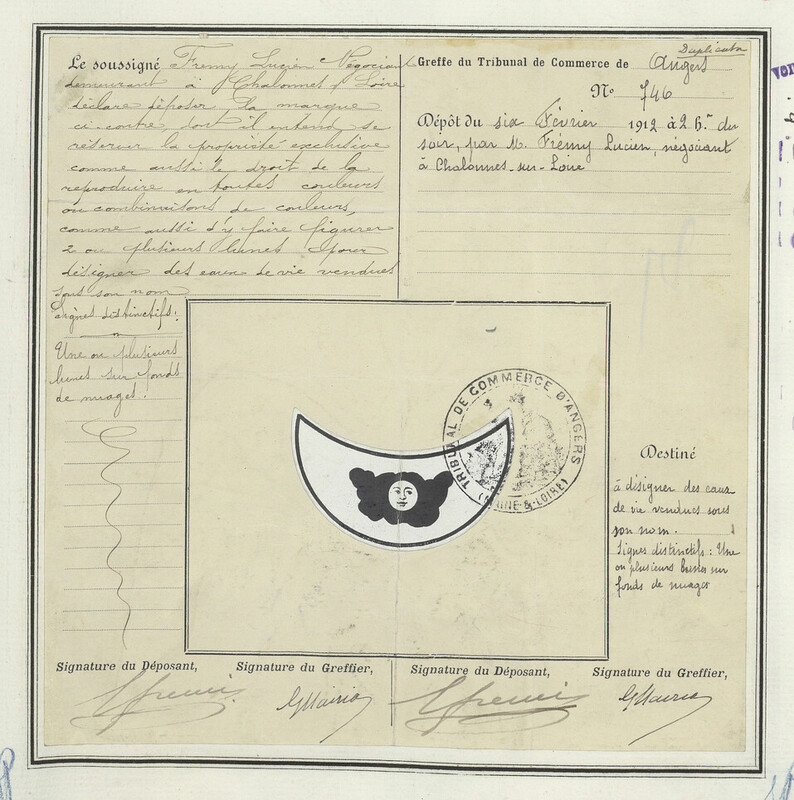 Le soussigné Frémy Lucien Négociant
demeurant à Chalonnes s/ Loire
déclare déposer la marque
ci-contre, dont il entend se
réserver la propriété exclusive
comme aussi le droit de la
reproduire en toutes couleurs
ou combinaisons de couleurs,
comme aussi d'y faire figurer
2 ou plusieurs lunes pour
désigner des eaux de vie vendues
sous son nom
Signes distinctifs:
Une ou plusieurs
lunes sur fonds
de nuages.
Duplicata
Greffe du Tribunal de Commerce de Angers
No 746
Dépôt du six Février 1912 à 2 h. du
soir, par M. Frémy Lucien, négociant
à Chalonnes-sur-Loire
TRIBUNAL DE COMMERCE D'ANGERS
(MAINE-&-LOIRE)
Destiné
à désigner des eaux
de vie vendues sous
son nom.
Signes distinctifs: Une
ou plusieurs sur
fonds de nuages
Signature du Déposant,
Signature du Greffier,
Signature du Déposant,
Signature du Greffier,